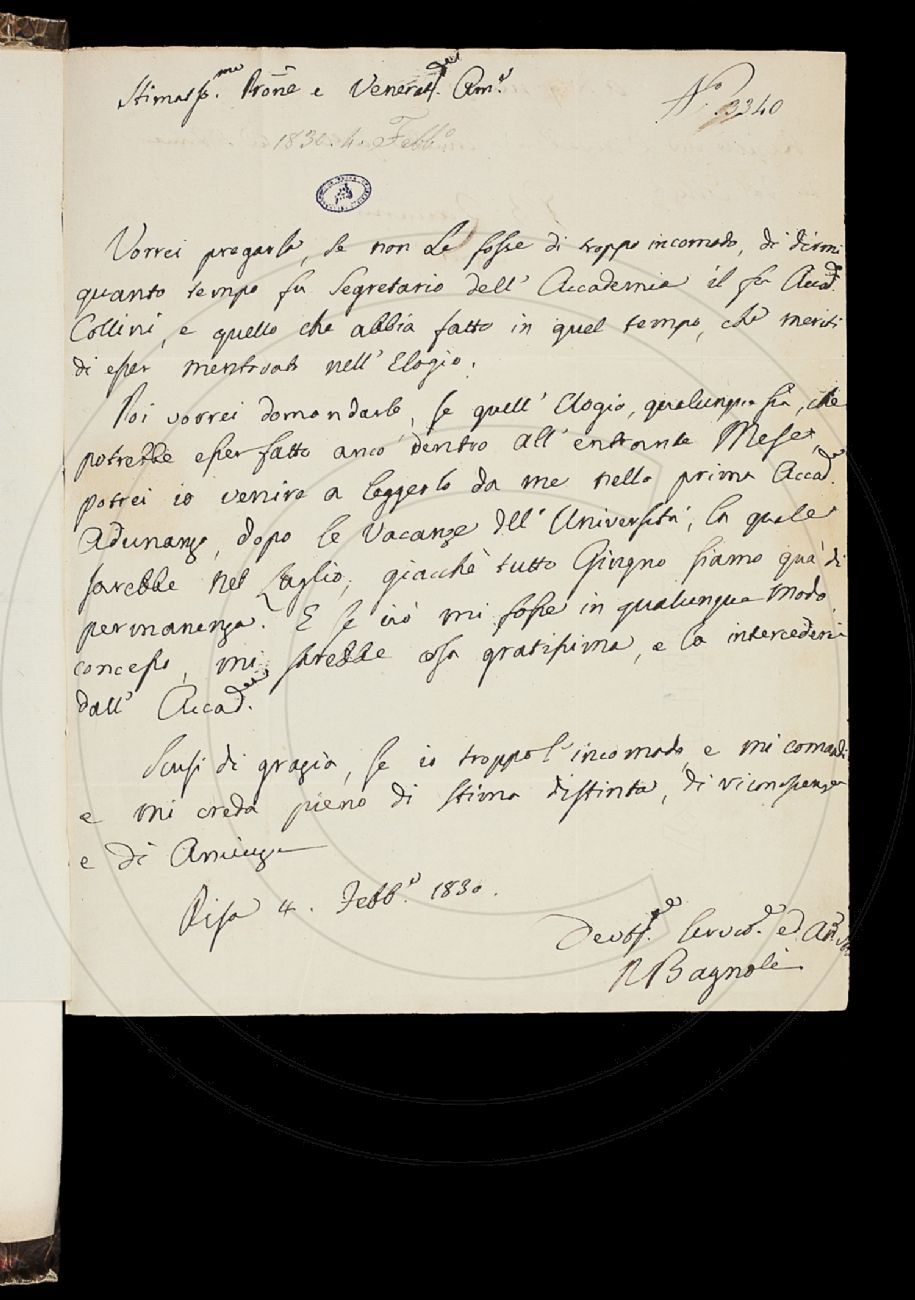 Stimatiss.mo Prõne e Veneratiss. Am.o
N.o 3340
1830. 4. Febb.o
Vorrei pregarla, se non Le fosse di troppo incomodo, di dirmi
quanto tempo fu Segretario dell' Accademia il fu Accad.
Collini, e quello che abbia fatto in quel tempo, che meriti
di esser mentovato nell' Elogio.
Poi vorrei domandarle, se quell' Elogio, qualunque sia, che
potrebbe esser fatto anco dentro all' entrante Mese,
potrei io venire a leggerlo da me nella prima Accad.
Adunanza, dopo le Vacanze dell' Università, la quale
sarebbe nel Luglio, giacchè tutto Giugno siamo quà di
permanenza. E se ciò mi fosse in qualunque modo
concesso, mi sarebbe cosa gratissima, e la intercederei
dall' Accad.
Scusi di grazia, se io troppo l' incomodo, e mi comandi
e mi creda pieno di stima distinta, di riconoscenza
e di Amicizia
Pisa 4. Febb.o 1830.
Devotiss. Servid.e ed Am.o
P Bagnoli